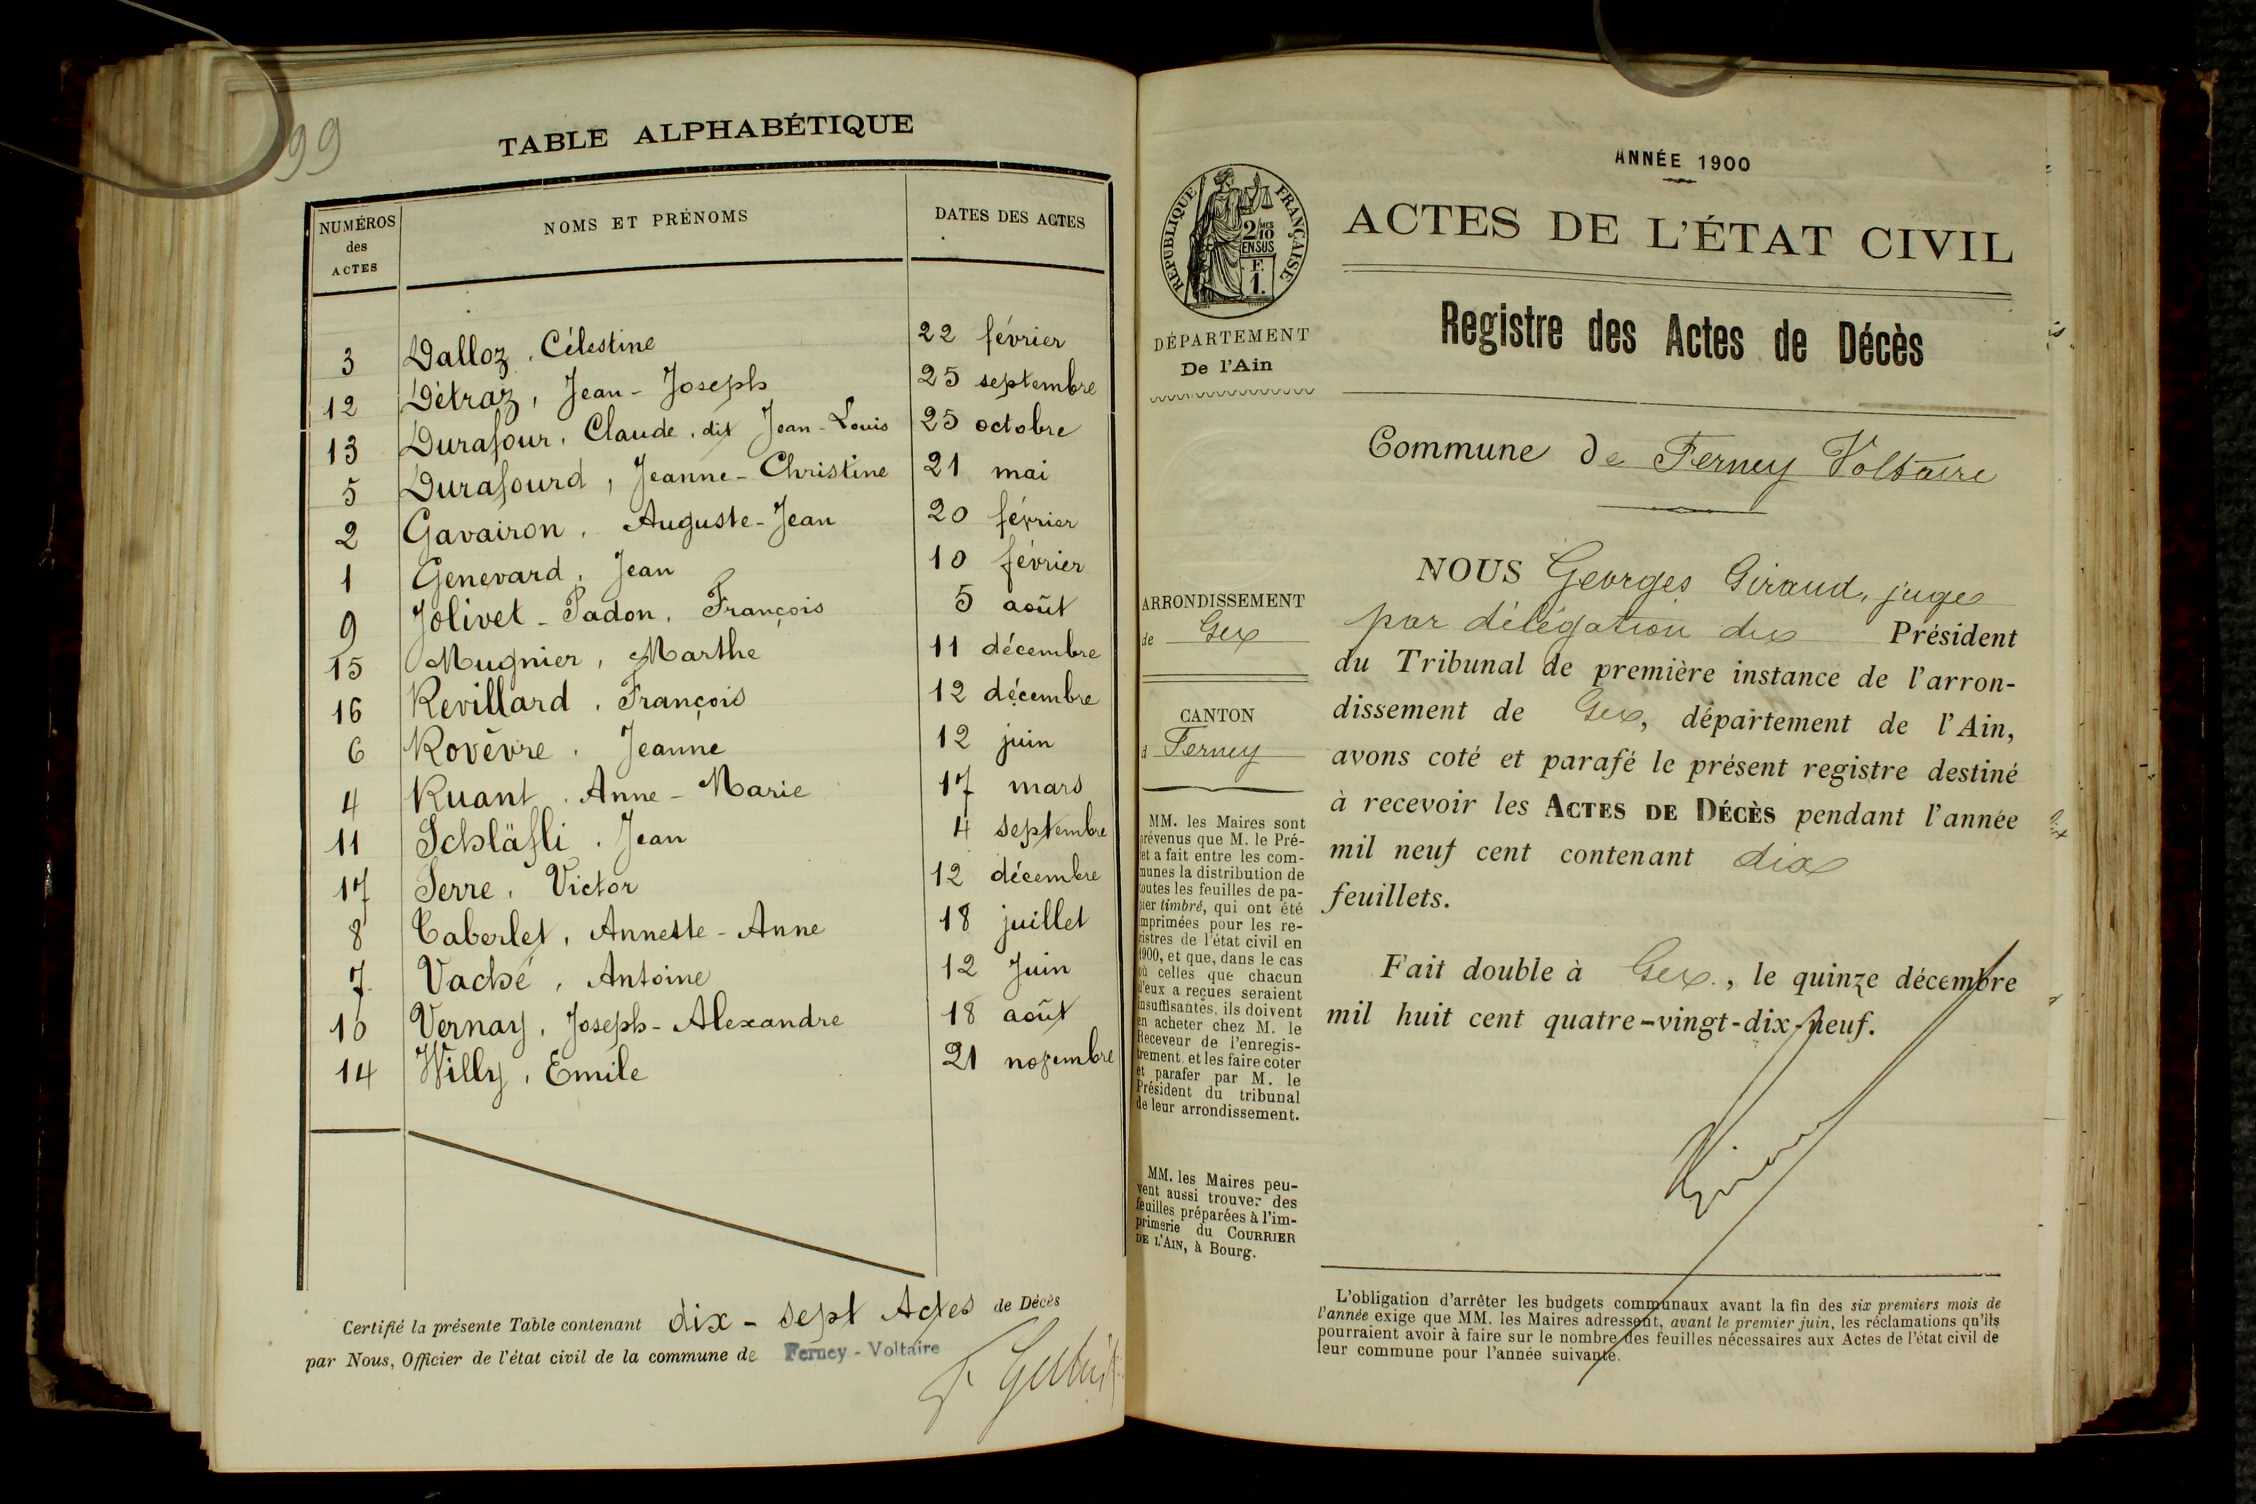 99
TABLE ALPHABÉTIQUE
NUMÉROS des ACTES NOMS ET PRÉNOMS DATES DES ACTES
3 Dalloz, Célestine 22 février
12 Détraz, Jean-Joseph 25 septembre
13 Durafour, Claude, dit Jean-Louis 25 octobre
5 Durafourd, Jeanne-Christine 21 mai
2 Gavairon, Auguste-Jean 20 février
1 Genevard, Jean 10 février
9 Jolivet-Padon, François 5 août
15 Mugnier, Marthe 11 décembre
16 Revillard, François 12 décembre
6 Rovèvre, Jeanne 12 juin
4 Ruant, Anne-Marie 17 mars
11 Schläfli, Jean 4 septembre
17 Serre, Victor 12 décembre
8 Taberlet, Annette-Anne 18 juillet
7 Vaché, Antoine 12 Juin
10 Vernay, Joseph-Alexandre 18 août
14 Willy, Emile 21 novembre
Certifié la présente Table contenant dix-sept Actes de Décès
par Nous, Officier de l'état civil de la commune de Ferney-Voltaire
ANNÉE 1900
RÉPUBLIQUE FRANÇAISE
2/10 EN SUS
F. 1.
ACTES DE L'ÉTAT CIVIL
DÉPARTEMENT
De l'Ain
Registre des Actes de Décès
Commune de Ferney Voltaire
ARRONDISSEMENT
de Gex
CANTON
d Ferney
MM. les Maires sont
prévenus que M. le Pré-
fet a fait entre les com-
munes la distribution de
toutes les feuilles de pa-
pier timbré, qui ont été
imprimées pour les re-
gistres de l'état civil en
1900, et que, dans le cas
où celles que chacun
d'eux a reçues seraient
insuffisantes, ils doivent
en acheter chez M. le
Receveur de l'enregis-
trement et les faire coter
et parafer par M. le
Président du tribunal
de leur arrondissement.
MM. les Maires peu-
vent aussi trouver des
feuilles préparées à l'im-
primerie du COURRIER
DE L'AIN, à Bourg.
NOUS Georges Giraud, juge
par délégation du Président
du Tribunal de première instance de l'arron-
dissement de Gex, département de l'Ain,
avons coté et parafé le présent registre destiné
à recevoir les ACTES DE DÉCÈS pendant l'année
mil neuf cent contenant dix
feuillets.
Fait double à Gex, le quinze décembre
mil huit cent quatre-vingt-dix-neuf.
L'obligation d'arrêter les budgets communaux avant la fin des six premiers mois de
l'année exige que MM. les Maires adressent, avant le premier juin, les réclamations qu'ils
pourraient avoir à faire sur le nombre des feuilles nécessaires aux Actes de l'état civil de
leur commune pour l'année suivante.